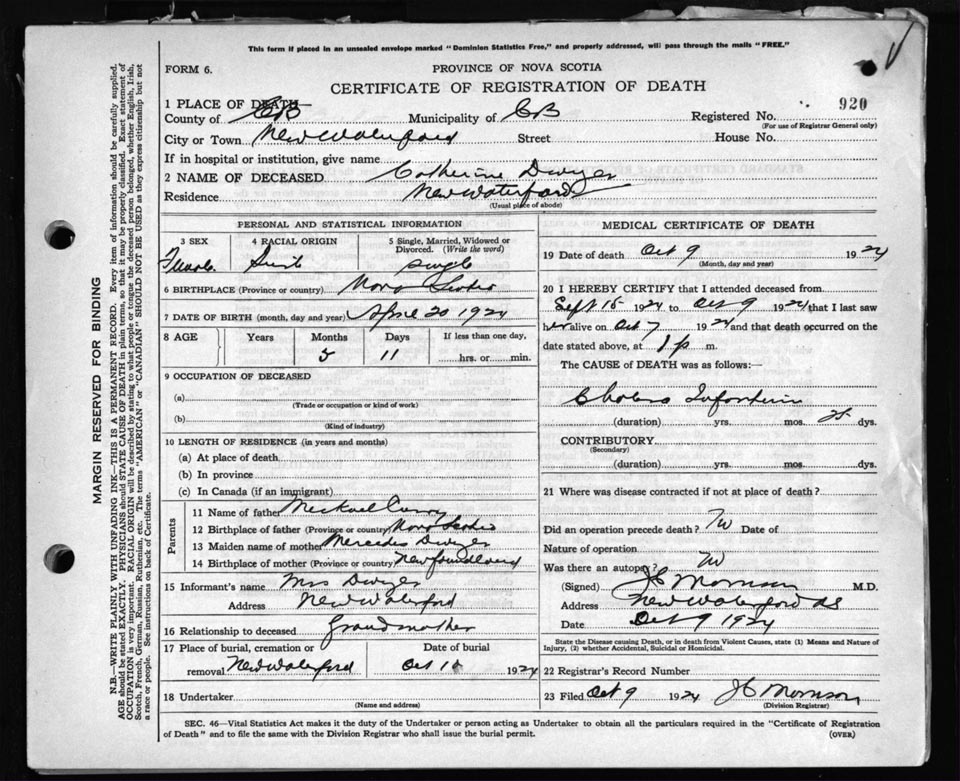 This form if placed in an unsealed envelope marked "Dominion Statistics Free," and properly addressed, will pass through the mails "FREE."
FORM 6.
PROVINCE OF NOVA SCOTIA
CERTIFICATE OF REGISTRATION OF DEATH
920
1 PLACE OF DEATH
County of CB Municipality of CB Registered No.
(For use of Registrar General only)
City or Town New Waterford Street House No.
If in hospital or institution, give name
2 NAME OF DECEASED Catherine Dwyer
Residence New Waterford
(Usual place of abode)
PERSONAL AND STATISTICAL INFORMATION
3 SEX 4 RACIAL ORIGIN 5 Single, Married, Widowed or Divorced. (Write the word)
Female single
6 BIRTHPLACE (Province or country) Nova Scotia
7 DATE OF BIRTH (month, day and year) April 20 1924
8 AGE Years Months Days If less than one day,
5 11 hrs. or min.
9 OCCUPATION OF DECEASED
(a)
(Trade or occupation or kind of work)
(b)
(Kind of industry)
10 LENGTH OF RESIDENCE (in years and months)
(a) At place of death
(b) In province
(c) In Canada (if an immigrant)
Parents
11 Name of father Michael
12 Birthplace of father (Province or country) Nova Scotia
13 Maiden name of mother Mercedes Dwyer
14 Birthplace of mother (Province or country) Newfoundland
15 Informant's name Mrs Dwyer
Address New Waterford
16 Relationship to deceased Grandmother
17 Place of burial, cremation or Date of burial
removal New Waterford Oct 1924
18 Undertaker
(Name and address)
MEDICAL CERTIFICATE OF DEATH
19 Date of death Oct 9 1924
(Month, day and year)
20 I HEREBY CERTIFY that I attended deceased from
Sept 15 1924 to Oct 9 1924 that I last saw
her alive on Oct 7 1924 and that death occurred on
date stated above, at 1 p m.
The CAUSE of DEATH was as follows:—
Cholera Infantum
(duration) yrs. mos. dys.
CONTRIBUTORY
(Secondary)
(duration) yrs. mos. dys.
21 Where was disease contracted if not at place of death?
Did an operation precede death? No Date of
Nature of operation
Was there an autopsy? No
(Signed) J C Morrison M.D.
Address New Waterford
Date Oct 9 1924
State the Disease causing Death, or in death from Violent Causes, state (1) Means and Nature of
Injury, (2) whether Accidental, Suicidal or Homicidal.
22 Registrar's Record Number
23 Filed Oct 9 1924 J C Morrison
(Division Registrar)
SEC. 46—Vital Statistics Act makes it the duty of the Undertaker or person acting as Undertaker to obtain all the particulars required in the "Certificate of Registration
of Death" and to file the same with the Division Registrar who shall issue the burial permit.
(OVER)
MARGIN RESERVED FOR BINDING
N.B—WRITE PLAINLY WITH UNFADING INK—THIS IS A PERMANENT RECORD. Every item of information should be carefully supplied.
AGE should be stated EXACTLY. PHYSICIANS should STATE CAUSE OF DEATH in plain terms, so that it may be properly classified. Exact statement of
OCCUPATION is very important. RACIAL ORIGIN will be described by stating to what people or tongue the deceased person belonged, whether English, Irish,
Scotch, French, German, Russian, Ruthenian, etc. The terms "AMERICAN" or "CANADIAN" SHOULD NOT BE USED as they express citizenship but not
a race or people. See instructions on back of Certificate.